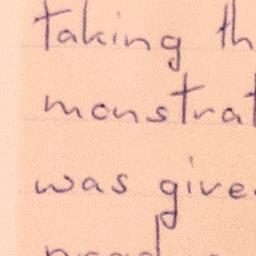 taking th
monstrat
was give